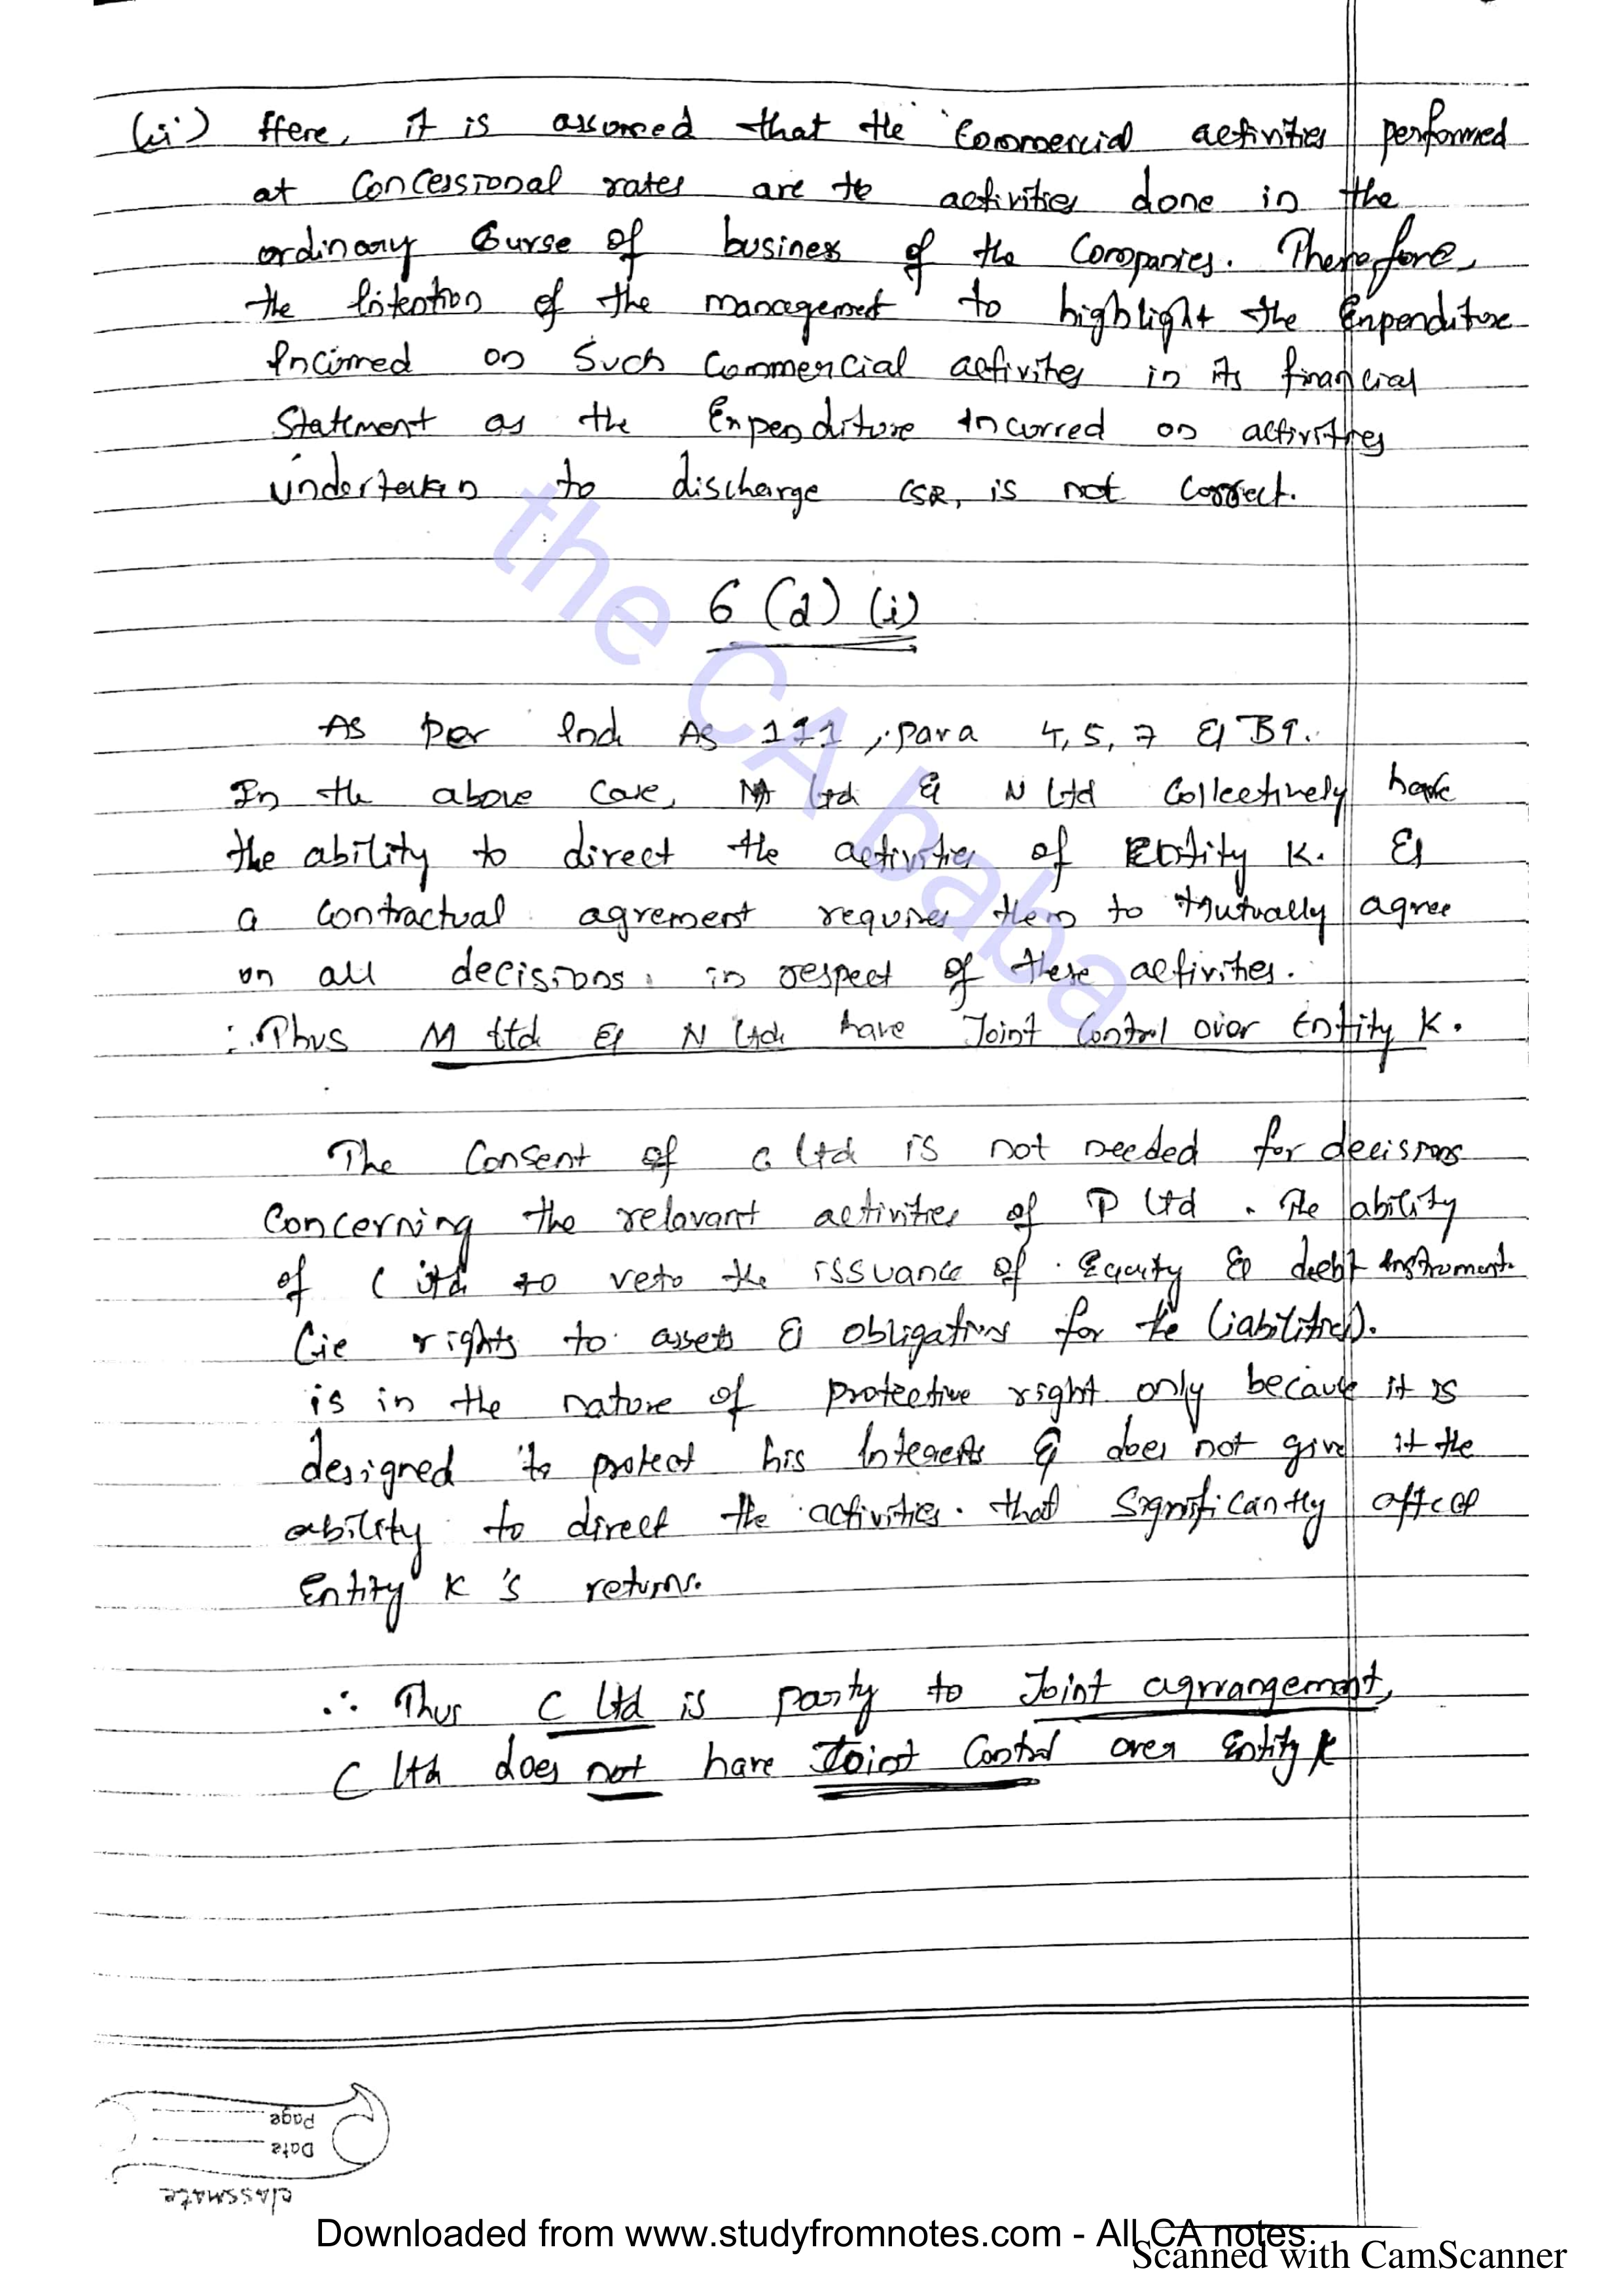 (ii) Here, it is assumed that the Commercial activities performed
at Concessional rates are te activities done in the
ordinary Course of business of the Companies. Therefore,
the Intention of the management to highlight the Expenditure
Incurred on Such Commercial activities in its financial
Statement as the Expenditure Incurred on activities
undertaken to discharge CSR, is not Correct.
6 (d) (i)
As per Ind As 111, para 4, 5, 7 & B9.
In the above case, M Ltd & N Ltd Collectively have
the ability to direct the activities of Entity K. &
a contractual agrement requires them to Mutually agree
on all decisions in respect of these activities.
∴ Thus M Ltd & N Ltd have Joint Control over Entity K.
The Consent of C Ltd is not needed for decisions
Concerning the relavant activities of P Ltd. The ability
of C Ltd to veto the issuance of Equity & debt instrument
(ie rights to assets & obligations for the liabilities).
is in the nature of protective right only because it is
designed to protect his Interests & does not give it the
ability to direct the activities that Significantly affect
Entity K's returns.
∴ Thus C Ltd is party to Joint agrrangement,
C Ltd does not have Joint Control over Entity K
Page
Date
classmate
the CA baba
Downloaded from www.studyfromnotes.com - All CA notes
Scanned with CamScanner